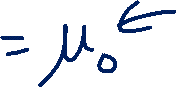 = μ₀ ←